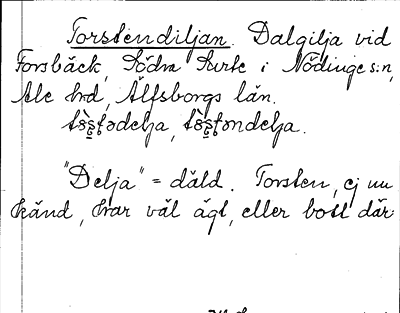 Torstendiljan. Dalgilja vid
Forsbäck, Södra Surte i Nödinge s:n,
Ale hrd, Älfsborgs län.
"Delja" = däld. Torsten, ej nu
känd, har väl ägt, eller bott där